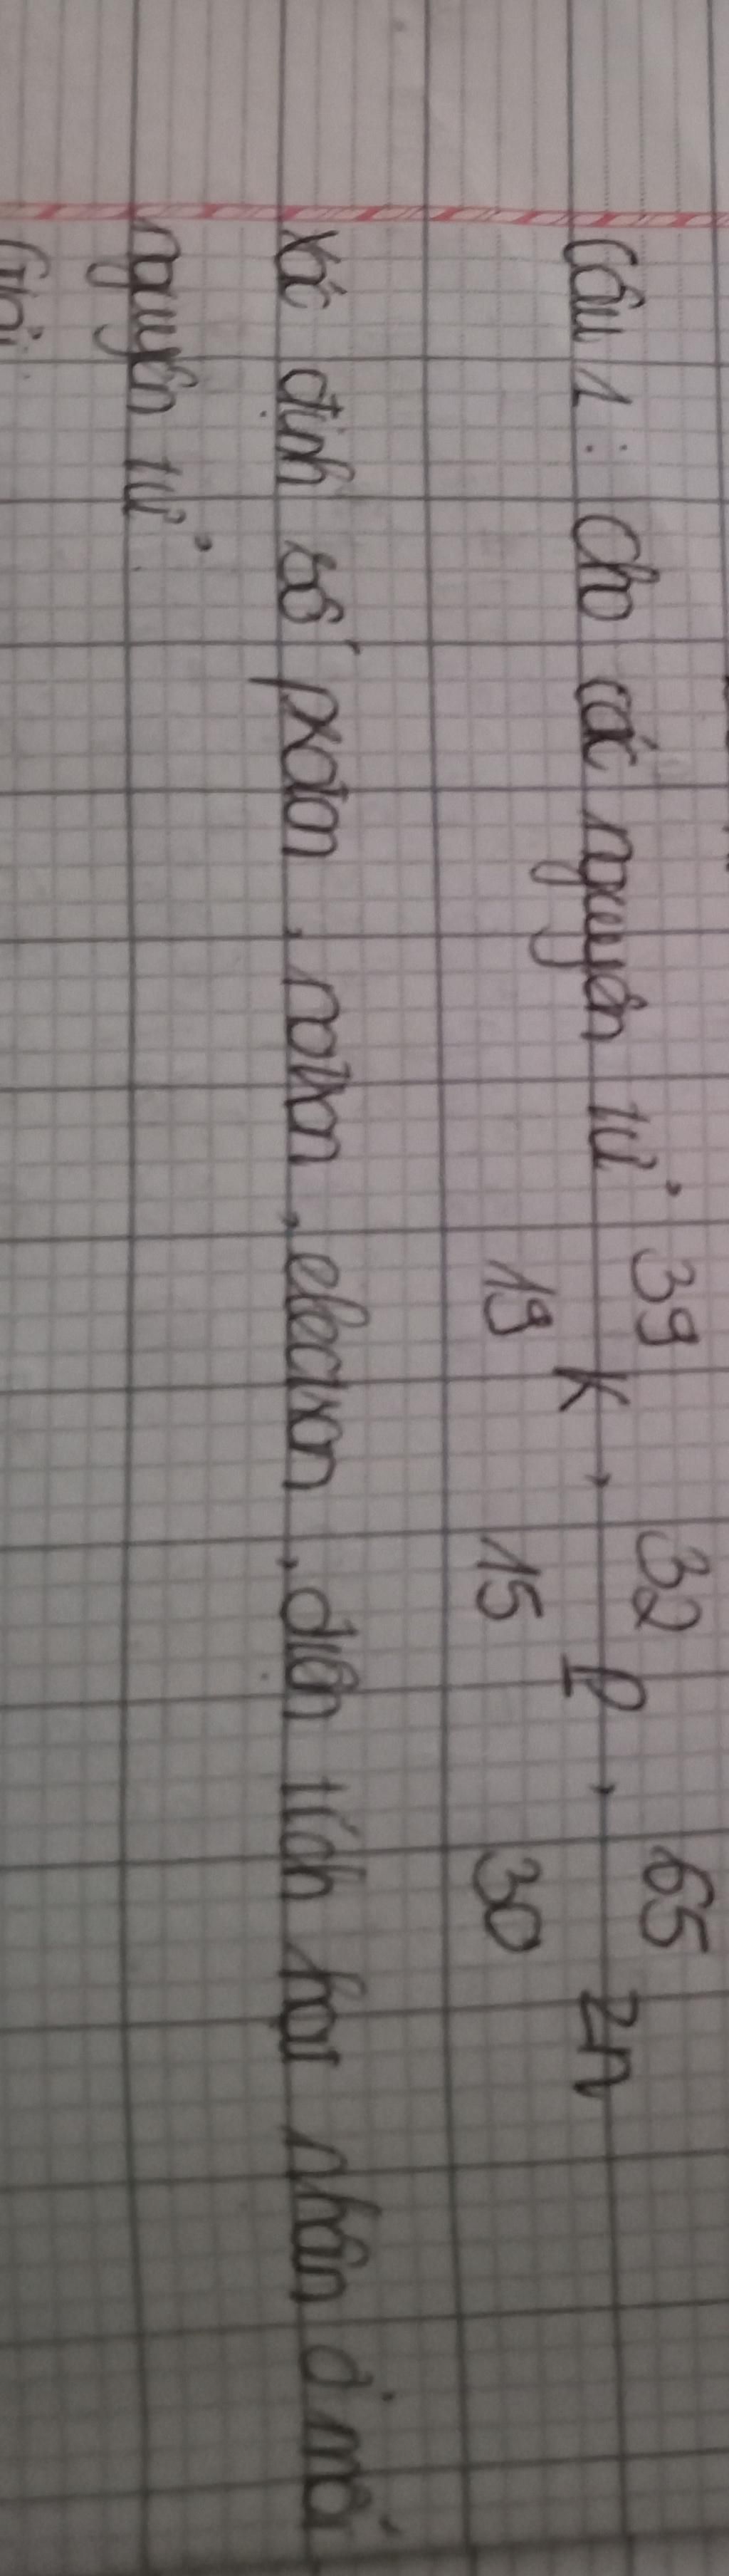 Câu 1 : Cho các nguyên tử 39 19 K , 32 15 P , 65 30 Zn
Xác định số proton , notron , electron , điện tích hạt nhân ở mỗi
nguyên tử.
Giải